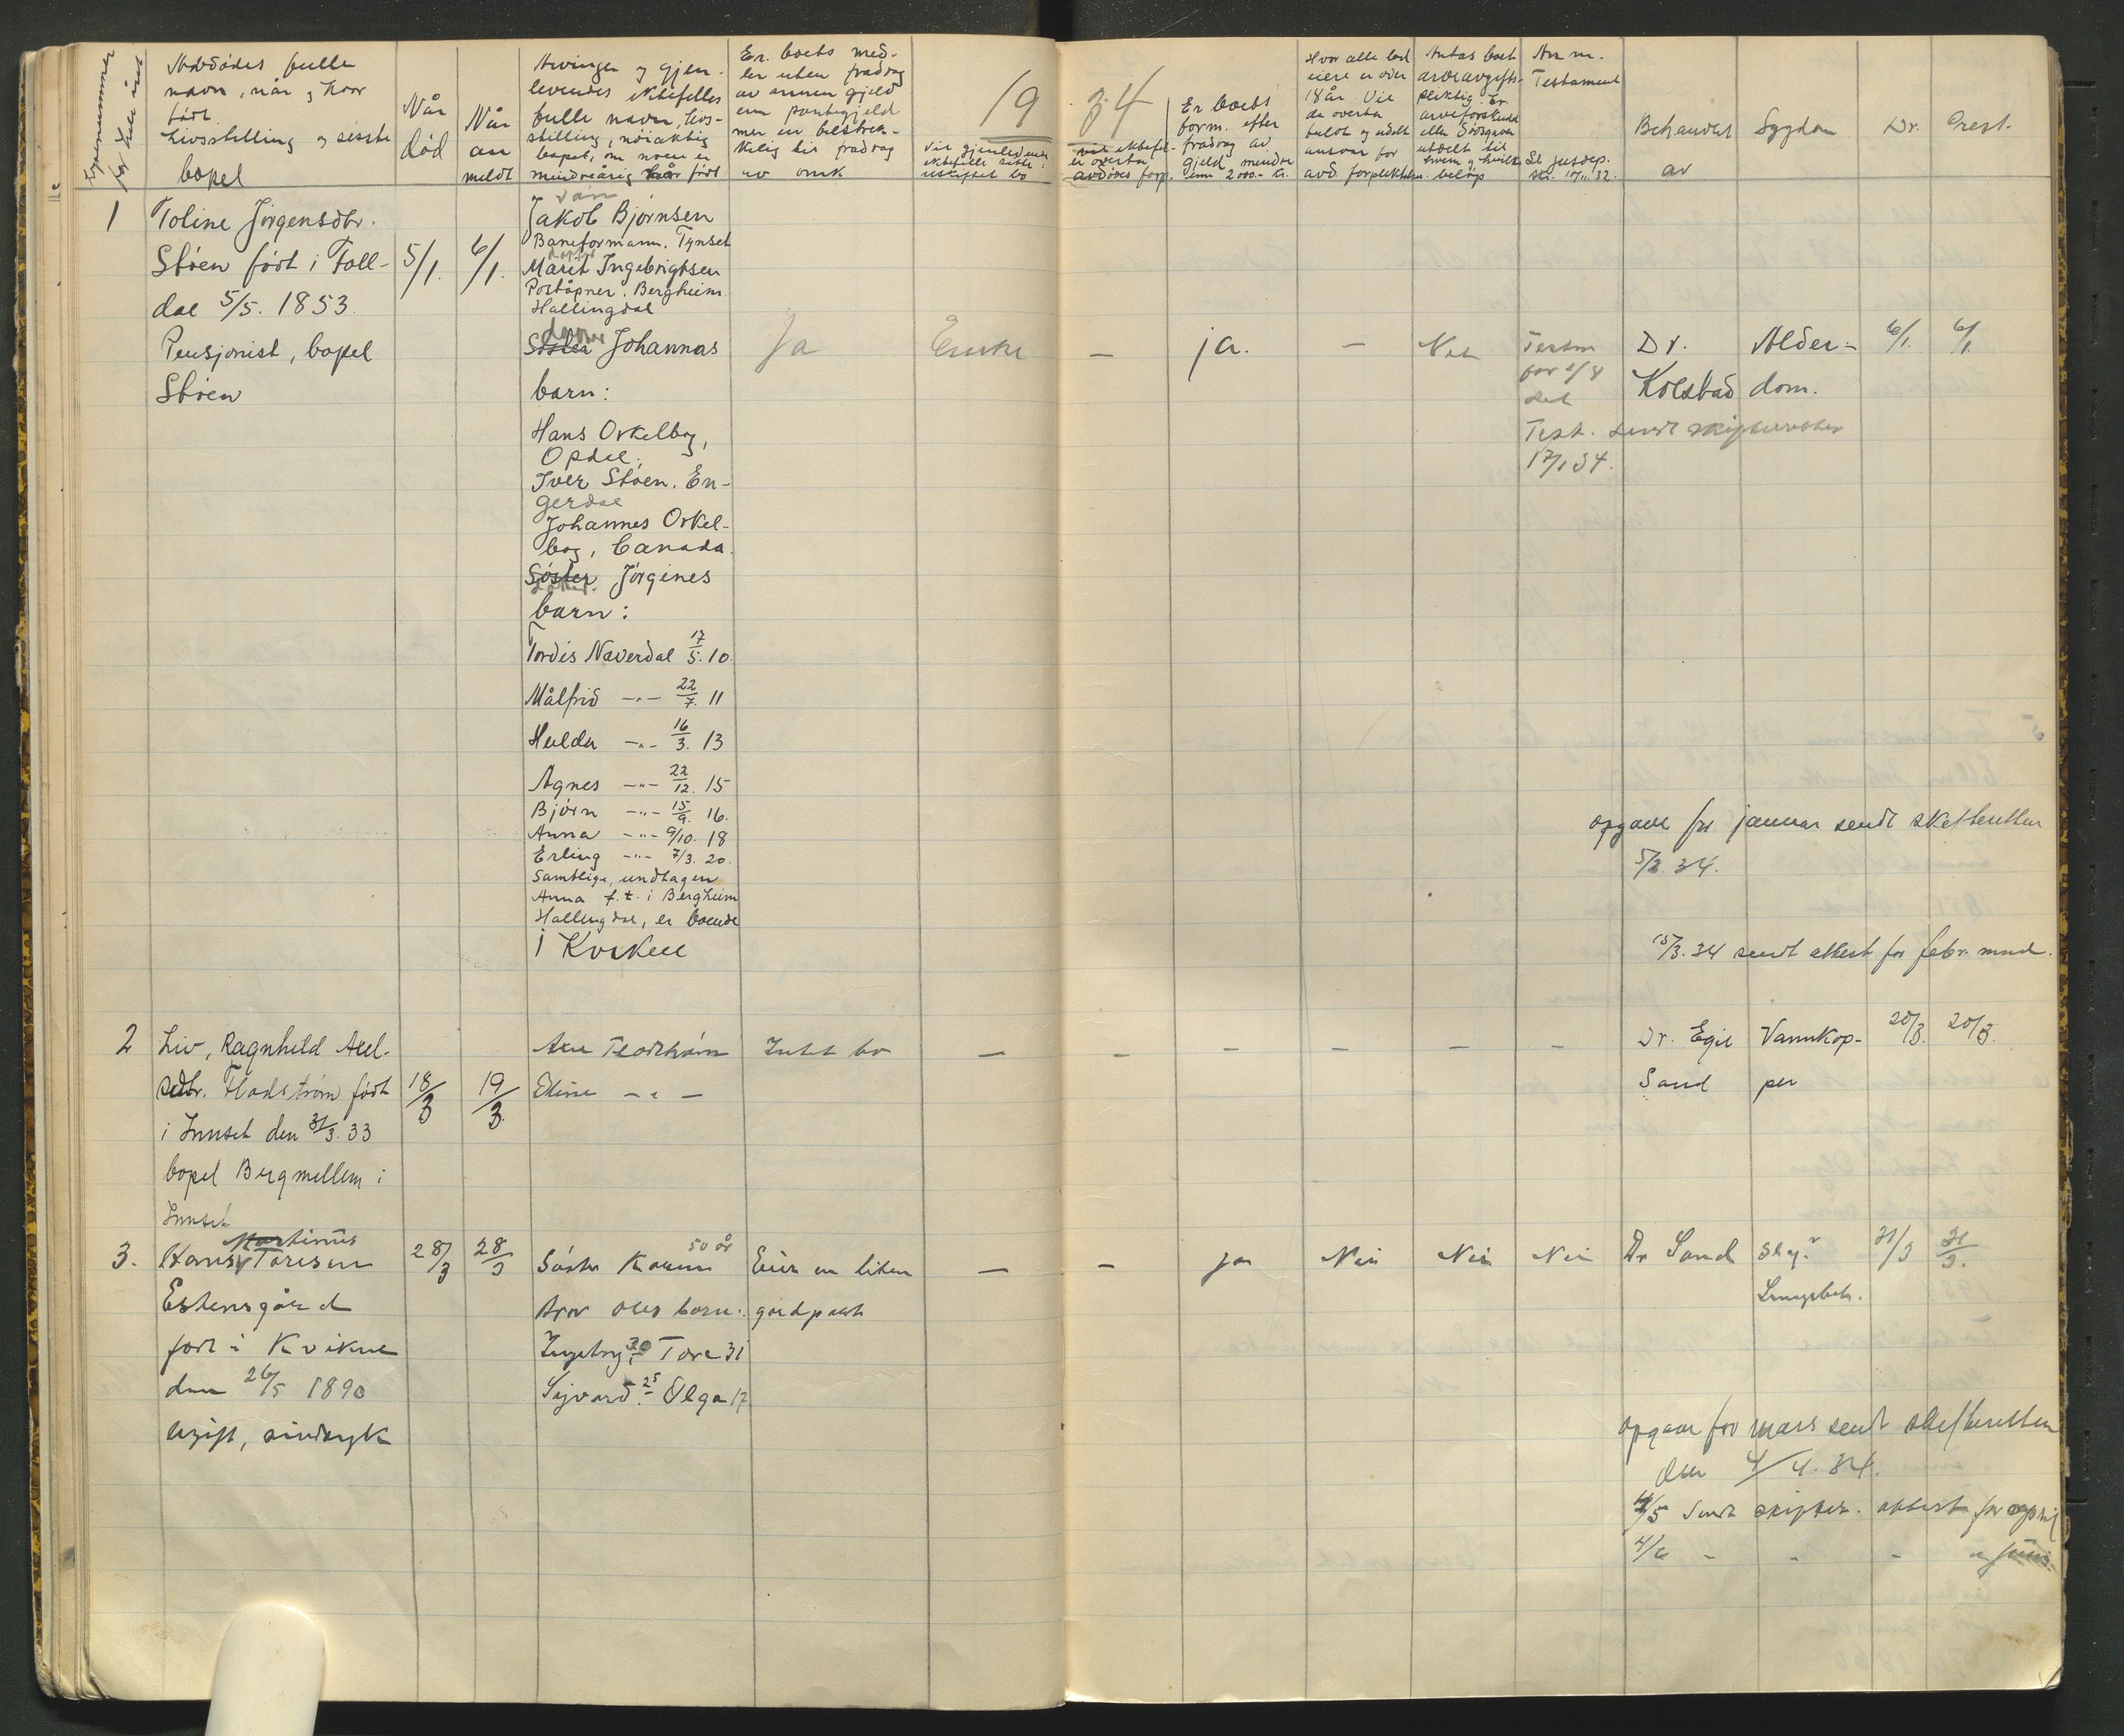 Løpenummer
for hele året
Avdødes fulle
navn, når og hvor
født.
Livsstilling og sisste
bopel
Når
død
Når
an
meldt
Arvinger og gjen-
levendes ektefelles
fulle navn, livs-
stilling, nöiaktig
bopel, om noen er
mindreårig når född
Er boets mid-
ler uten fradrag
av annen gjeld
enn pantegjeld
mer en tilstrek-
kelig til fradrag
av omk
19
Vil gjenlevende
ektefelle sitte i
uskiftet bo
34
Vil ektefel-
le overta
avdödes forp.
Er boets
form. efter
fradrag av
gjeld mindre
enn 2000.- kr.
Hvor alle lod
eiere er över
18 år. Vil
de overta
fuldt og udelt
ansvar for
avd. forpliktelser.
Antas boet
arveavgifts-
pliktig. Er
arveforskudd
eller Dödsgaver
utdelt til
hvem og hvilke
belöp
Testament
Se Jusdep.
Behandlet
av
Sygdom
Dr.
Prest.
1
Toline Jörgensdtr.
Stöen födt i Foll-
dal 5/5. 1853.
Pensjonist, bopel
Stöen
5/1.
6/1.
Jakob Bjørnsen
Baneformann. Tynset
Marit Ingebrigtsen
Poståpner. Bergheim
Hallingdal
Söster Johannas
barn:
Hans Orkelbog,
Opdal.
Iver Stöen. En-
gerdal
Johannes Orkel-
bog, Canada.
Söster Jörgines
barn:
Tordis Naverdal 17/5. 10.
Målfrid -"- 22/7. 11
Hulda -"- 16/3. 13
Agnes -"- 22/12. 15
Björn -"- 15/9. 16.
Anna -"- 9/10. 18
Erling -"- 7/3. 20.
Samtlige, undtagen
Anna f.t. i Bergheim
Hallingdal, er boende
i Kvikne
Ja
Enke
-
ja.
-
Nei
Dr.
Kolstad
Alder-
dom.
6/1.
6/1.
Test. sendt skifteretten
17/1 34.
opgave for januar sendt skifteretten
5/2. 34.
15/3. 34 sendt attest for febr. mnd.
2
Liv, Ragnhild Axel-
sdtr. Flodström födt
i Innset den 31/3. 33
bopel Bergmellem i
Innset
18/3
19/3.
Axel Flodström
Eline - " -
Intet bo
-
-
-
-
-
-
Dr. Egil
Sand
Vannkop-
per
20/3.
20/3.
3.
Martinus
Hans Toresen
Estensgård
født i Kvikne
den 26/5 1890
Ugift, sindsyk
28/3
28/3
Söster Karen 50 år
Bror Oles barn:
Ingebrg. 30 Tore 31
Sigvard. 25 Olga 17
Eier en liten
gardpart
-
-
ja
Nei
Nei
Nei
Dr Sand
Slag?
Lungebet.
31/3
31/3.
opgave for mars sendt skifteretten
den 4/4. 34.
4/5 Sendt skifter. attest for april
4/6 - " - " juni